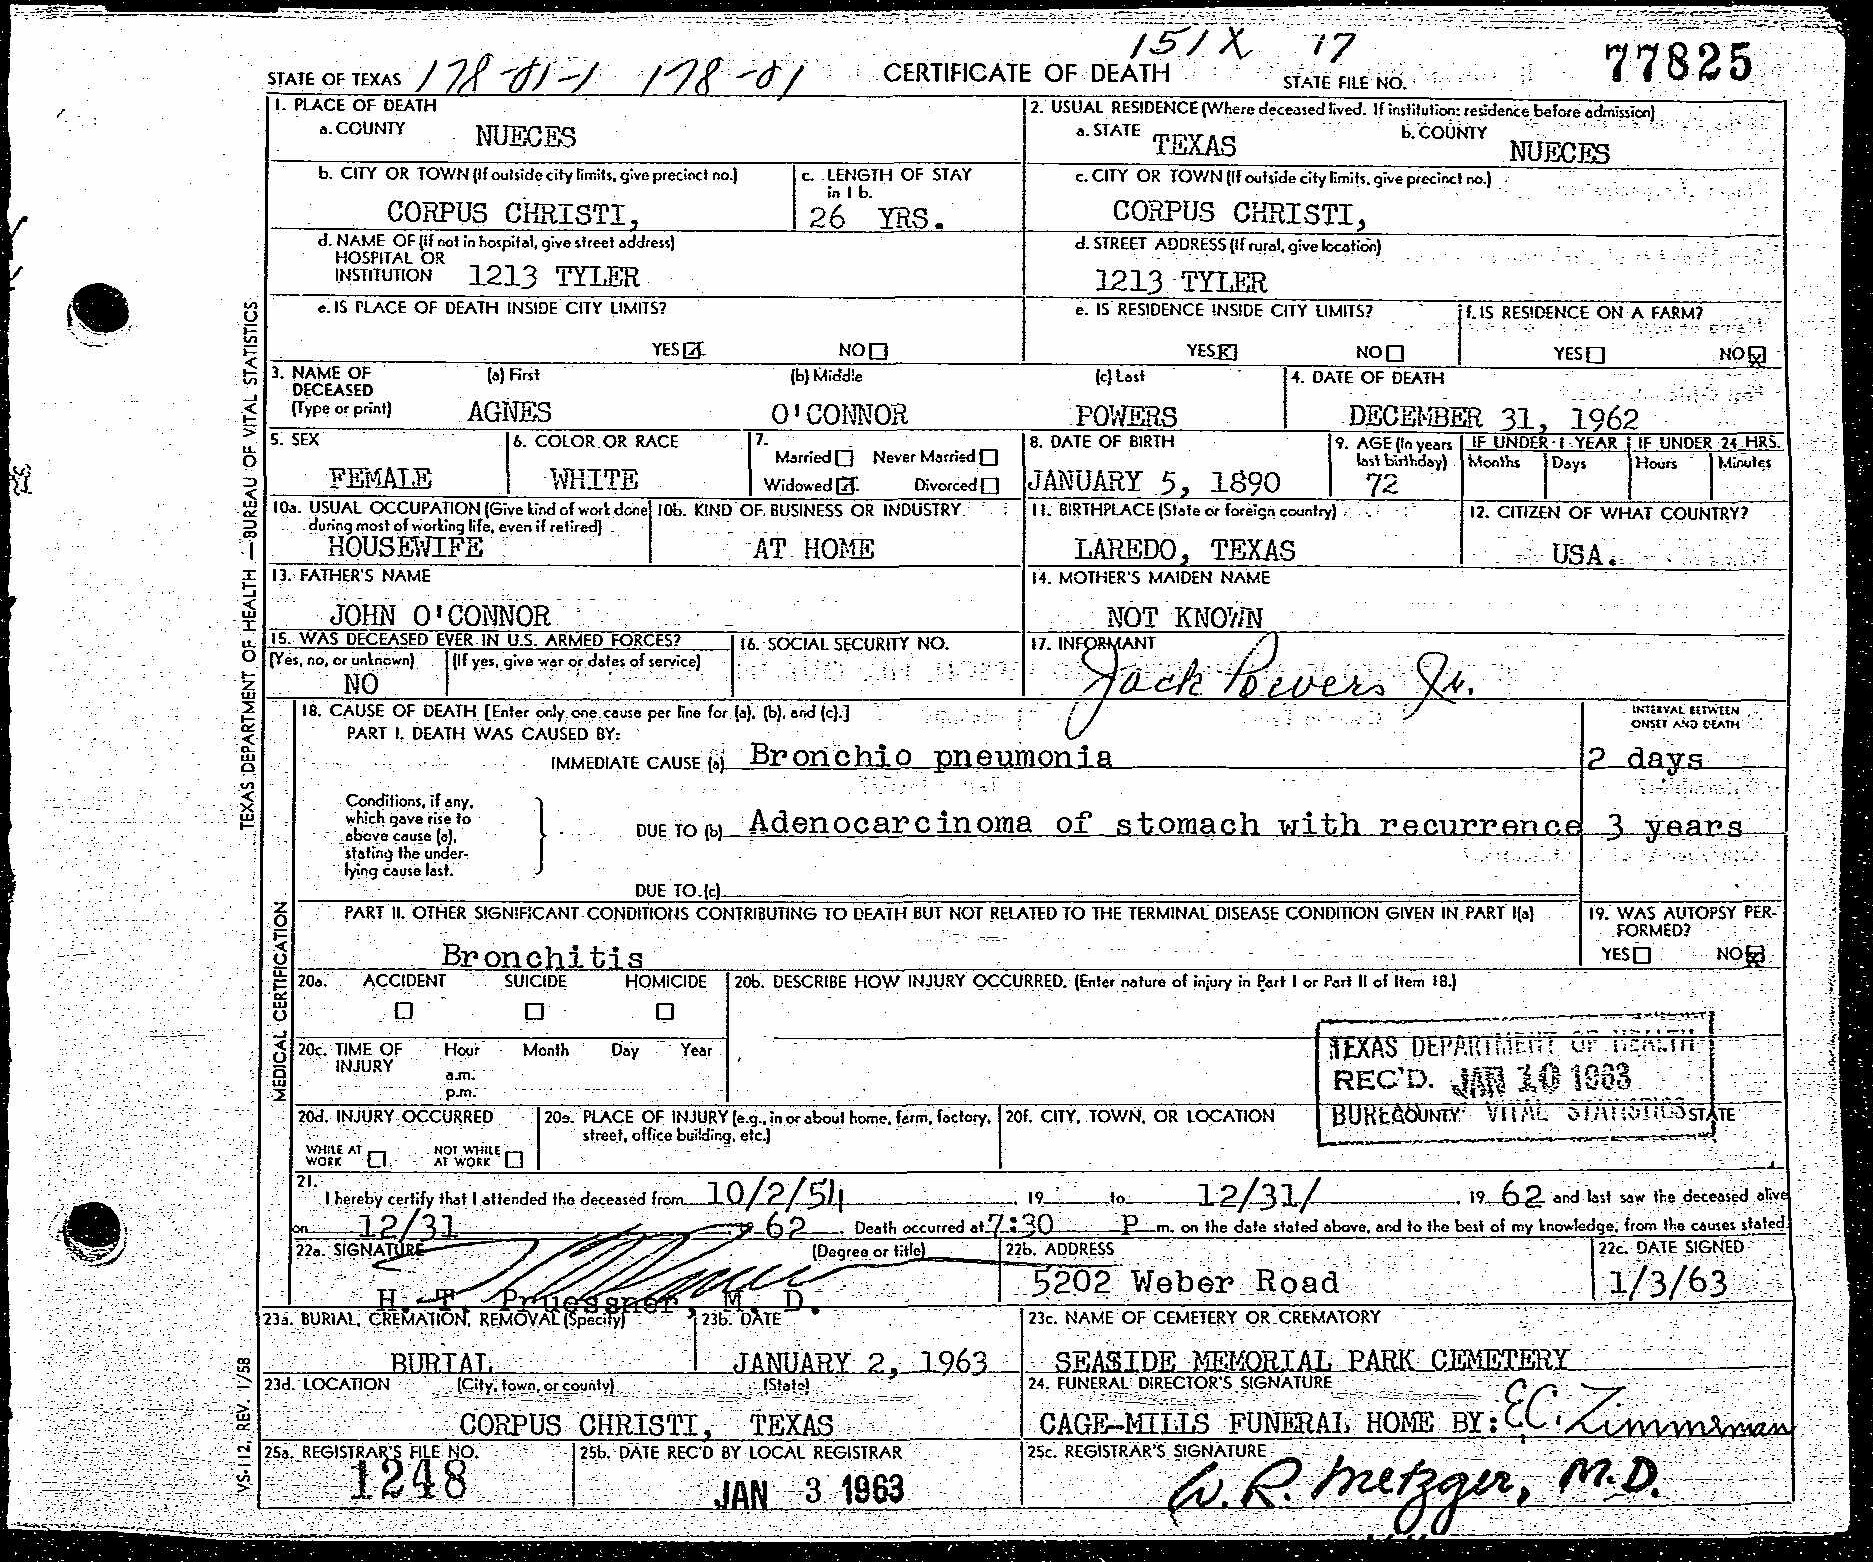 151X 17
STATE OF TEXAS 178-01-1 178-01 CERTIFICATE OF DEATH STATE FILE NO. 77825
1. PLACE OF DEATH
a. COUNTY NUECES
2. USUAL RESIDENCE (Where deceased lived. If institution: residence before admission)
a. STATE TEXAS b. COUNTY NUECES
b. CITY OR TOWN (If outside city limits, give precinct no.)
CORPUS CHRISTI,
c. LENGTH OF STAY
in 1 b.
26 YRS.
c. CITY OR TOWN (If outside city limits, give precinct no.)
CORPUS CHRISTI,
d. NAME OF (If not in hospital, give street address)
HOSPITAL OR
INSTITUTION 1213 TYLER
d. STREET ADDRESS (If rural, give location)
1213 TYLER
e. IS PLACE OF DEATH INSIDE CITY LIMITS?
YES NO
e. IS RESIDENCE INSIDE CITY LIMITS?
YES NO
f. IS RESIDENCE ON A FARM?
YES NO
3. NAME OF
DECEASED
(Type or print)
(a) First
AGNES
(b) Middle
O'CONNOR
(c) Last
POWERS
4. DATE OF DEATH
DECEMBER 31, 1962
5. SEX
FEMALE
6. COLOR OR RACE
WHITE
7.
Married Never Married
Widowed Divorced
8. DATE OF BIRTH
JANUARY 5, 1890
9. AGE (In years
last birthday)
72
IF UNDER 1 YEAR
Months Days
IF UNDER 24 HRS.
Hours Minutes
10a. USUAL OCCUPATION (Give kind of work done
during most of working life, even if retired)
HOUSEWIFE
10b. KIND OF BUSINESS OR INDUSTRY
AT HOME
11. BIRTHPLACE (State or foreign country)
LAREDO, TEXAS
12. CITIZEN OF WHAT COUNTRY?
USA.
13. FATHER'S NAME
JOHN O'CONNOR
14. MOTHER'S MAIDEN NAME
NOT KNOWN
15. WAS DECEASED EVER IN U.S. ARMED FORCES?
(Yes, no, or unknown) (If yes, give war or dates of service)
NO
16. SOCIAL SECURITY NO.
17. INFORMANT
Jack Powers Jr.
18. CAUSE OF DEATH [Enter only one cause per line for (a), (b), and (c).]
PART I. DEATH WAS CAUSED BY:
INTERVAL BETWEEN
ONSET AND DEATH
IMMEDIATE CAUSE (a) Bronchio pneumonia 2 days
Conditions, if any,
which gave rise to
above cause (a),
stating the under-
lying cause last.
DUE TO (b) Adenocarcinoma of stomach with recurrence 3 years
DUE TO (c)
PART II. OTHER SIGNIFICANT CONDITIONS CONTRIBUTING TO DEATH BUT NOT RELATED TO THE TERMINAL DISEASE CONDITION GIVEN IN PART I(a)
Bronchitis
19. WAS AUTOPSY PER-
FORMED?
YES NO
20a. ACCIDENT SUICIDE HOMICIDE
20b. DESCRIBE HOW INJURY OCCURRED. (Enter nature of injury in Part I or Part II of Item 18.)
20c. TIME OF
INJURY
Hour Month Day Year
a.m.
p.m.
TEXAS DEPARTMENT OF HEALTH
REC'D. JAN 10 1963
BUREAU VITAL STATISTICS
20d. INJURY OCCURRED
WHILE AT
WORK
NOT WHILE
AT WORK
20e. PLACE OF INJURY (e.g., in or about home, farm, factory,
street, office building, etc.)
20f. CITY, TOWN, OR LOCATION COUNTY STATE
21.
I hereby certify that I attended the deceased from 10/2/54, 19 to 12/31/, 19 62 and last saw the deceased alive
on 12/31 62. Death occurred at 7:30 P m. on the date stated above, and to the best of my knowledge, from the causes stated.
22a. SIGNATURE (Degree or title)
H. T. Pruessner, M. D.
22b. ADDRESS
5202 Weber Road
22c. DATE SIGNED
1/3/63
23a. BURIAL, CREMATION, REMOVAL (Specify)
BURIAL
23b. DATE
JANUARY 2, 1963
23c. NAME OF CEMETERY OR CREMATORY
SEASIDE MEMORIAL PARK CEMETERY
23d. LOCATION (City, town, or county) (State)
CORPUS CHRISTI, TEXAS
24. FUNERAL DIRECTOR'S SIGNATURE
CAGE-MILLS FUNERAL HOME BY: E.C. Zimmerman
25a. REGISTRAR'S FILE NO.
1248
25b. DATE REC'D BY LOCAL REGISTRAR
JAN 3 1963
25c. REGISTRAR'S SIGNATURE
W. R. Metzger, M.D.
TEXAS DEPARTMENT OF HEALTH — BUREAU OF VITAL STATISTICS
MEDICAL CERTIFICATION
VS-112, REV. 1/58